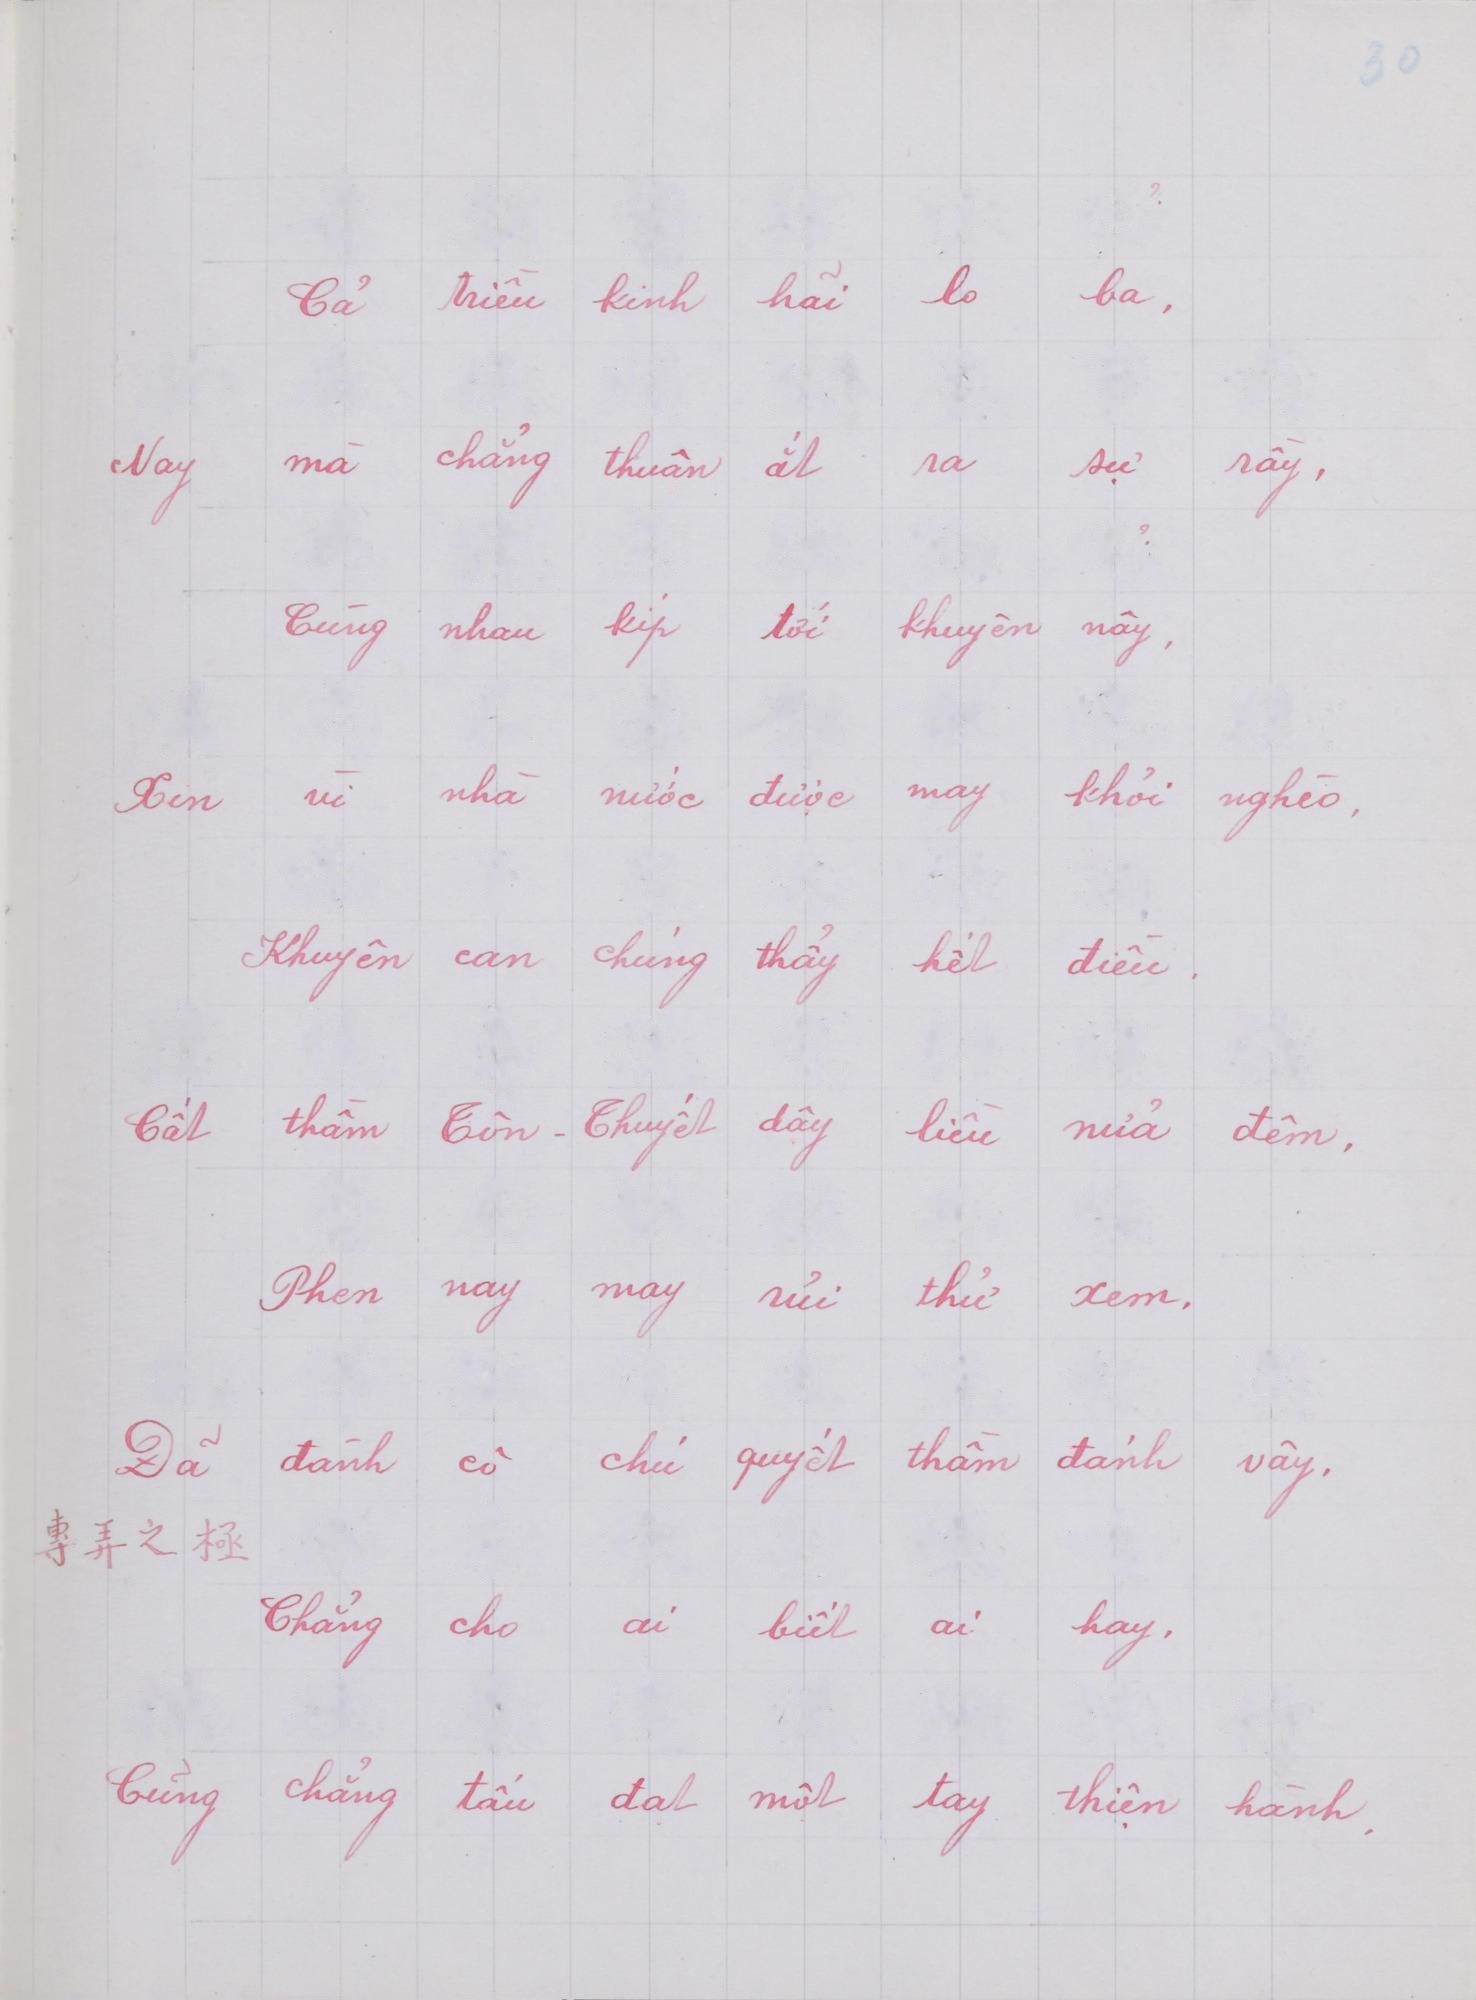 30
?
Cả triều kinh hãi lo ba,
Nay mà chẳng thuận ắt ra sự rầy,
?
Cùng nhau kíp tới khuyên nây,
Xin vì nhà nước được may khỏi nghèo,
Khuyên can chúng thảy hết điều.
Cất thầm Tôn-Thuyết dậy liều nửa đêm,
Phen nay may rủi thử xem.
Đã đành cô chú quyết thầm đánh vây.
專弄之極
Chẳng cho ai biết ai hay.
Cũng chẳng tấu đạt một tay thiện hành.